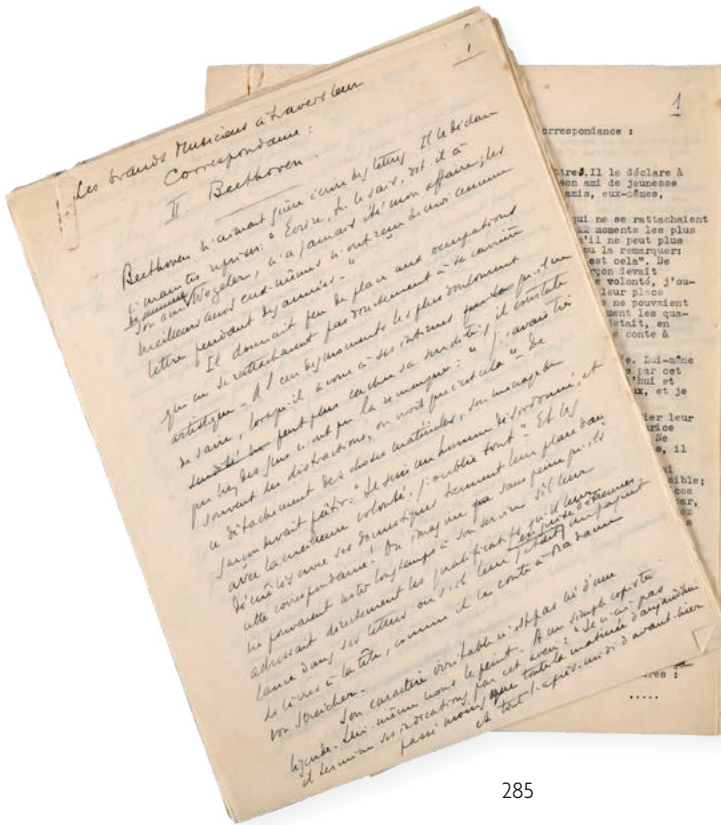 1
Les Grands Musiciens à travers leur
Correspondance :
II. Beethoven.
Beethoven n'aimait guère écrire des lettres. Il le déclare
à maintes reprises : "Ecrire, tu le sais, dit-il à
son ami de jeunesse Wegeler, n'a jamais été mon affaire ; les
meilleurs amis eux-mêmes n'ont reçu de moi aucune
lettre pendant des années." 
Il donnait peu de place aux occupations
qui ne se rattachaient pas directement à sa carrière
artistique. A l'un des moments les plus douloureux
de sa vie, lorsqu'il avoue à ses intimes qu'il ne
peut plus cacher sa surdité, il constate
que bien des gens n'ont pu la remarquer : "J'avais très
souvent des distractions, on croit que c'est cela". De
ce détachement des choses matérielles, son ménage de
garçon devait pâtir. "Je suis un homme désordonné, et
avec la meilleure volonté, j'oublie tout". Et les
démêlés avec ses domestiques tiennent leur place dans
cette correspondance ! On imagine sans peine qu'ils
ne pouvaient rester longtemps à son service s'il leur
adressait directement les qualificatifs
dans ses lettres ou s'il leur jetait, en
de livres à la tête, comme il le conte à Madame
von Streicher.
Son caractère ombrageux n'est pas né d'une
légende. Lui-même nous le peint. A un simple copiste
il termine ses indications par cet aveu : "Je n'ai pas
passé moins que toute la matinée d'aujourd'hui
et tout l'après-midi d'avant-hier
1
orrespondance :
ttres. Il le déclare à
son ami de jeunesse
amis, eux-êmes,
qui ne se rattachaient
moments les plus
u'il ne peut plus
pu la remarquer:
est cela". De
rçon devait
e volonté, j'ou-
leur place
e ne pouvaient
ment les qua-
jetait, en
e conte à
e. Lui-même
par cet
'hui et
ux, et je
ier leur
urice
Ne
il
sible;
ces
ar,
ex
res :
.....
285